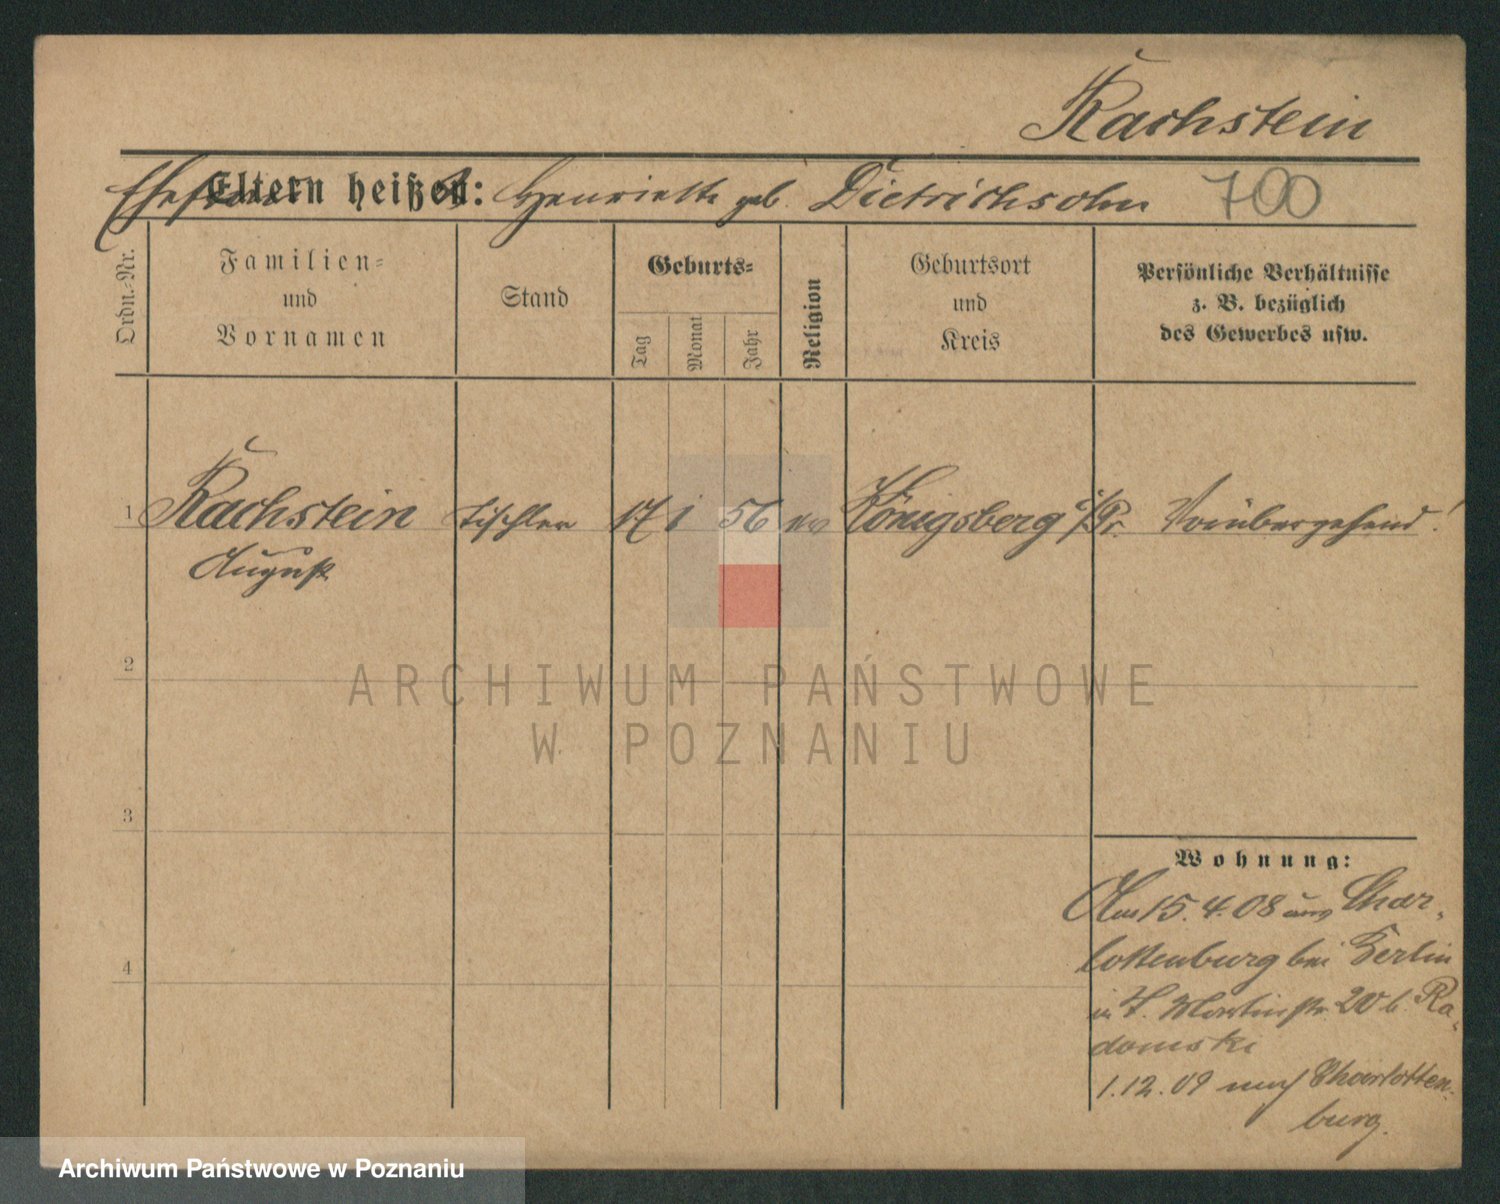 Kachstein
Eltern heißen: Henriette geb. Dietrichsohn 700
Ordn.-Nr.
Familien=
und
Vornamen
Stand
Geburts=
Tag
Monat
Jahr
Religion
Geburtsort
und
Kreis
Persönliche Verhältnisse
z. B. bezüglich
des Gewerbes usw.
1 Kachstein Tischler 17 1 56 ev Königsberg i/Pr. Vorübergehend!
August
2
3
4
Wohnung:
Am 15.4.08 aus Char-
lottenburg bei Berlin
in St. Martinstr. 20 b. Ra-
domski
1.12.09 nach Charlotten-
burg.
ARCHIWUM PAŃSTWOWE
W POZNANIU
Archiwum Państwowe w Poznaniu